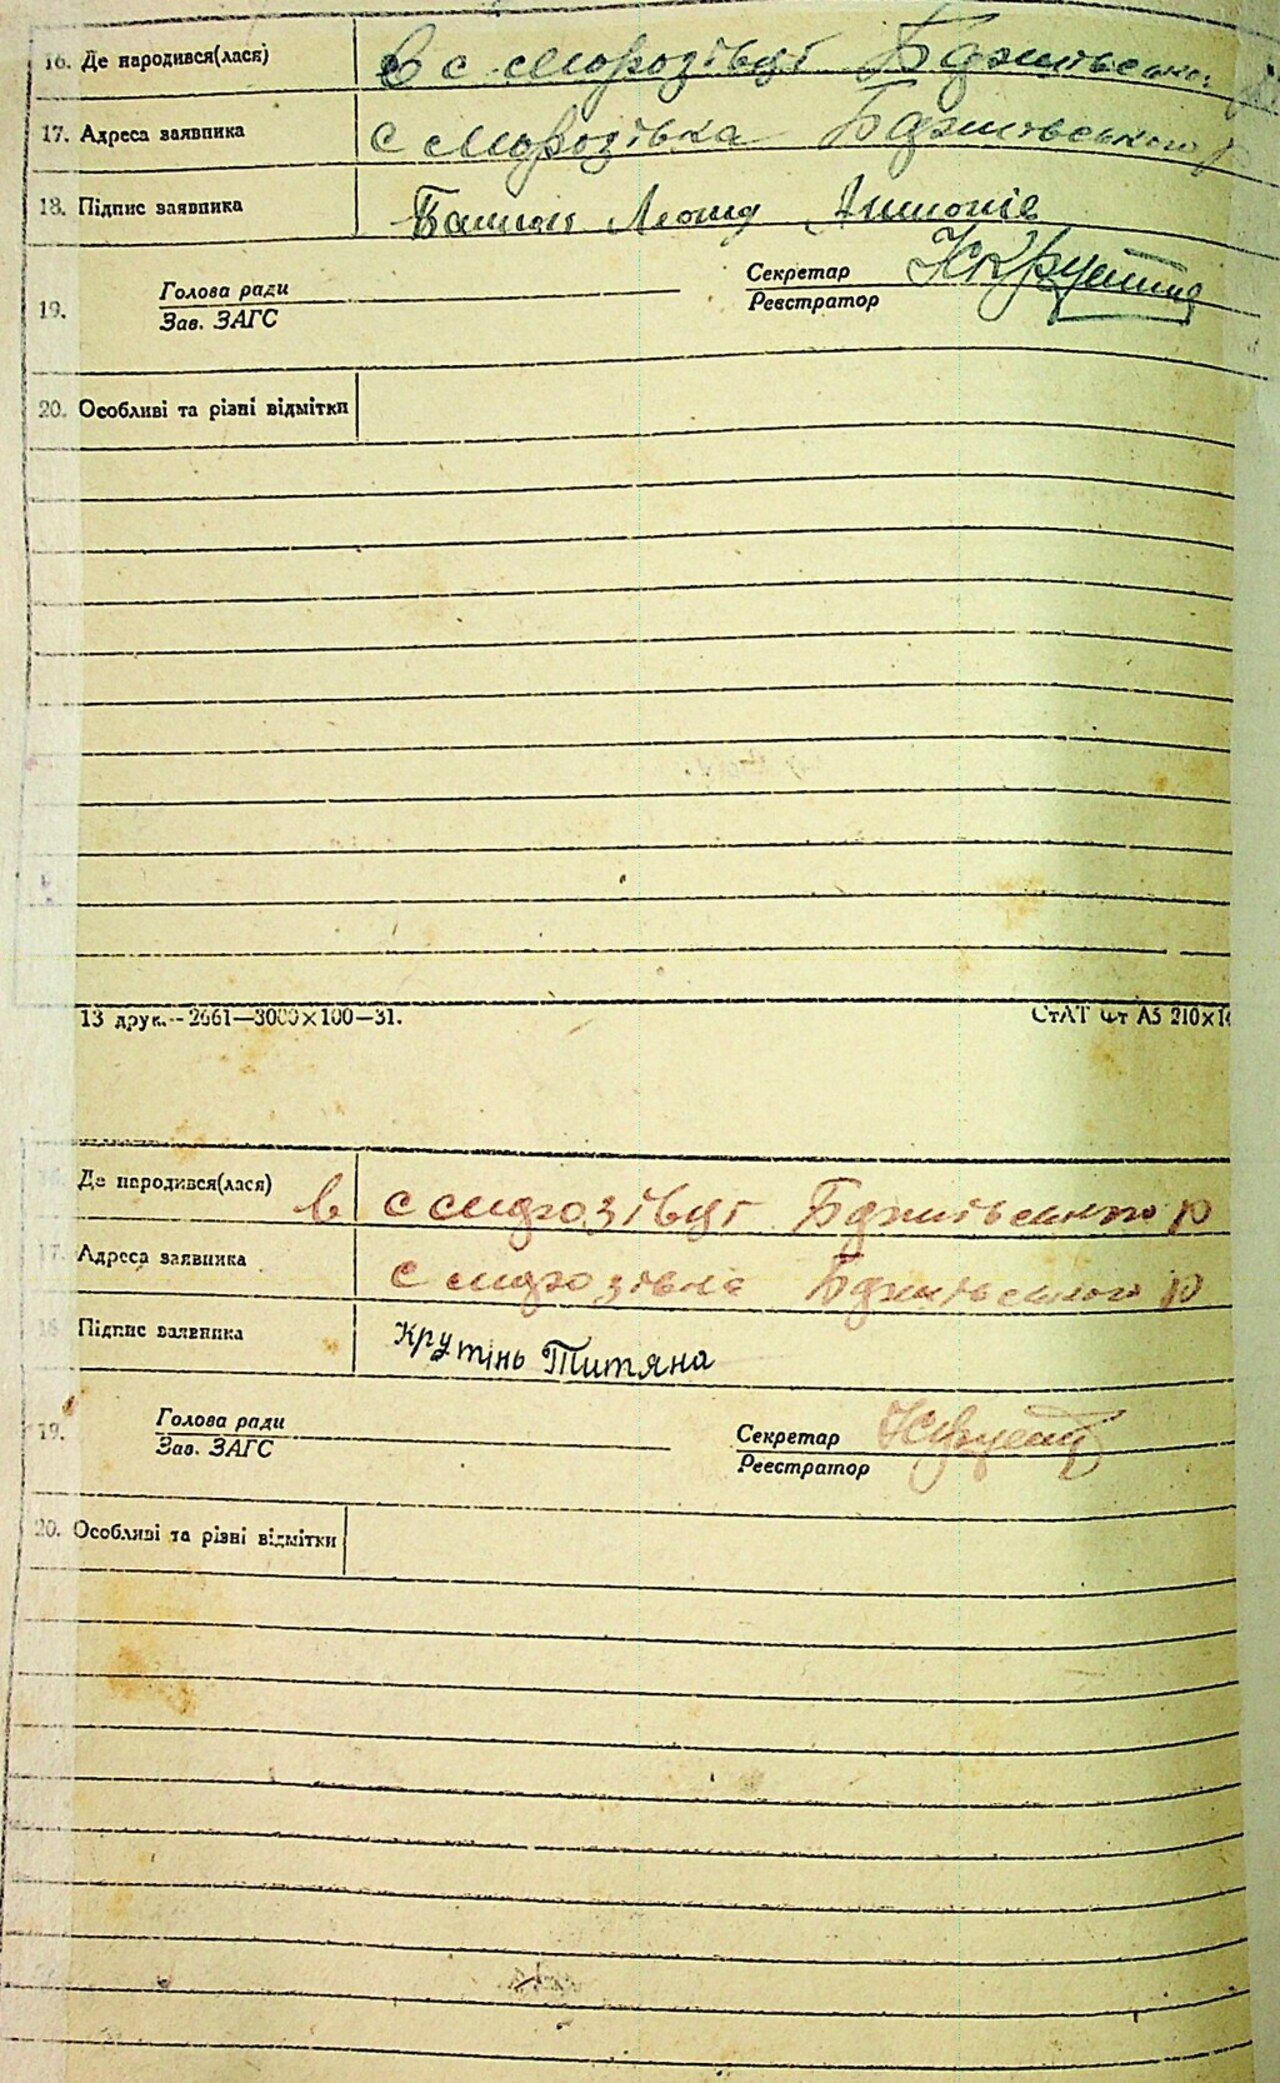 16. Де народився(лася) в с Морозівці Бджитівського
17. Адреса заявника с Морозівка Бджитівського р
18. Підпис заявника Леонід Антонів
19. Голова ради Секретар
Зав. ЗАГС Реєстратор
20. Особливі та різні відмітки
13 друк.—2661—3000×100—31. СтАТ фт А5 210×14
Де народився(лася) в с Морозівці р
17. Адреса заявника с Морозівка р
18. Підпис заявника Крутінь Титяна
19. Голова ради Секретар
Зав. ЗАГС Реєстратор
20. Особливі та різні відмітки